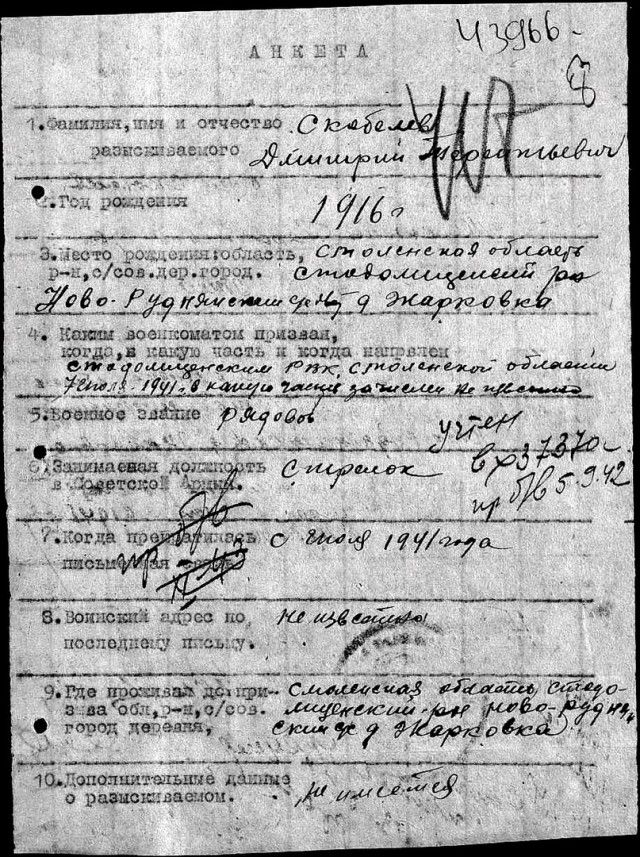 43966-
АНКЕТА
8
1.Фамилия,имя и отчество Скобелев
разыскиваемого Дмитрий Терентьевич
2.Год рождения 1916 г
3.Место рождения:область, Смоленская область
р-н,с/сов.дер.город. Стодолищенский рн
Ново-Руднянский д Жарковка
4. Каким военкоматом призван,
когда,в какую часть и когда направлен
Стодолищенским РВК, Смоленской области
июля 1941. в какую часть зачислен не известно
5.Военное звание рядовой
учтен
6.Занимаемая должность Стрелок вх 37370
в Советской Армии. пр б/в 5.9.42
7.Когда прекратилась с июля 1941 года
письменная
8.Воинский адрес по, не известно
последнему письму.
9.Где проживал до при- Смоленская область Стодо-
зыва обл,р-н,с/сов. лищенский рн ново-рудня
город деревня, ский д Жарковка
10.Дополнительные данные
о разыскиваемом. не имеется